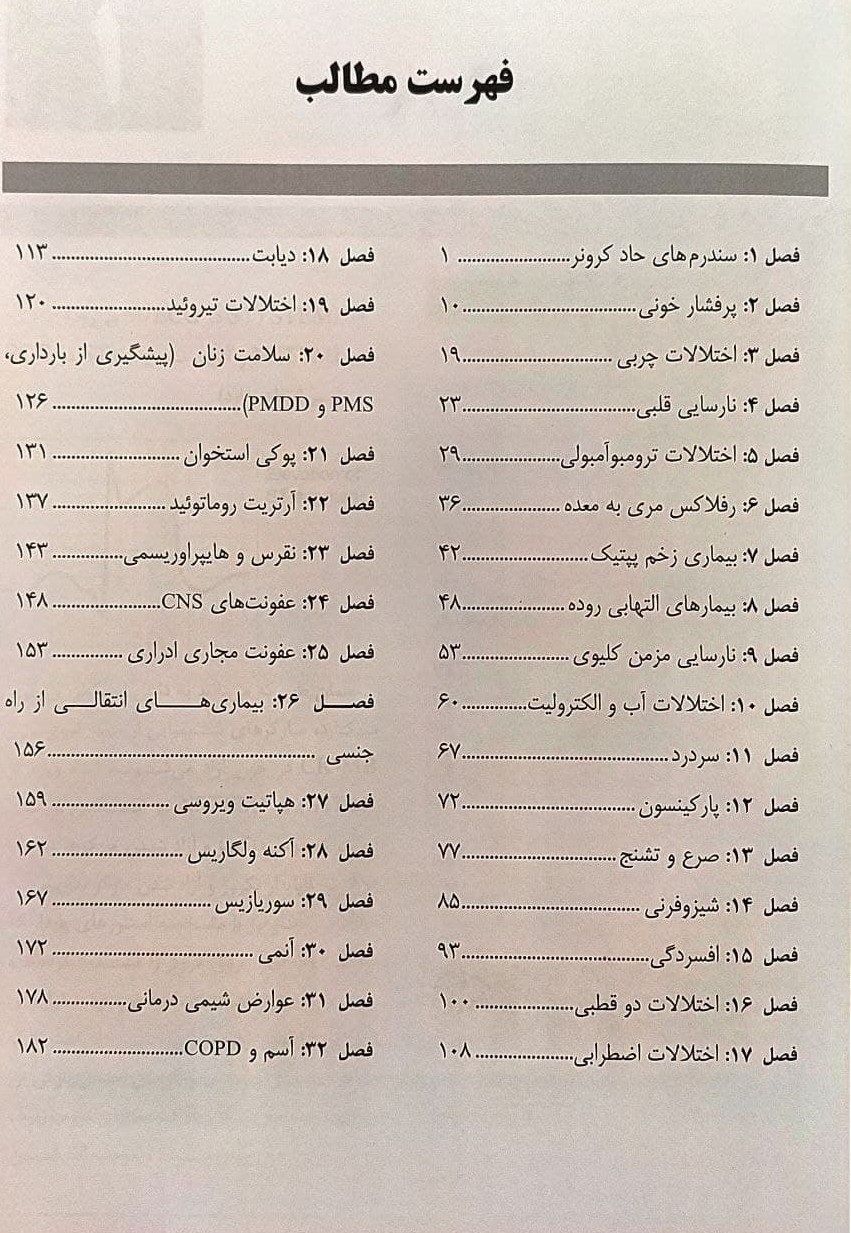 فهرست مطالب
فصل ۱: سندرم‌های حاد کرونر........................ ۱
فصل ۲: پرفشار خونی....................................۱۰
فصل ۳: اختلالات چربی ................................۱۹
فصل ۴: نارسایی قلبی....................................۲۳
فصل ۵: اختلالات ترومبوآمبولی.....................۲۹
فصل ۶: رفلاکس مری به معده .....................۳۶
فصل ۷: بیماری زخم پپتیک...........................۴۲
فصل ۸: بیمارهای التهابی روده ......................۴۸
فصل ۹: نارسایی مزمن کلیوی .......................۵۳
فصل ۱۰: اختلالات آب و الکترولیت..............۶۰
فصل ۱۱: سردرد............................................۶۷
فصل ۱۲: پارکینسون .....................................۷۲
فصل ۱۳: صرع و تشنج .................................۷۷
فصل ۱۴: شیزوفرنی ......................................۸۵
فصل ۱۵: افسردگی........................................۹۳
فصل ۱۶: اختلالات دو قطبی.....................۱۰۰
فصل ۱۷: اختلالات اضطرابی.....................۱۰۸
فصل ۱۸: دیابت..........................................۱۱۳
فصل ۱۹: اختلالات تیروئید........................۱۲۰
فصل ۲۰: سلامت زنان (پیشگیری از بارداری،
PMS و PMDD)........................................۱۲۶
فصل ۲۱: پوکی استخوان ...........................۱۳۱
فصل ۲۲: آرتریت روماتوئید ........................۱۳۷
فصل ۲۳: نقرس و هایپراوریسمی...............۱۴۳
فصل ۲۴: عفونت‌های CNS.......................۱۴۸
فصل ۲۵: عفونت مجاری ادراری ...............۱۵۳
فصـــل ۲۶: بیماری‌هـــــای انتقالـــی از راه
جنسی .........................................................۱۵۶
فصل ۲۷: هپاتیت ویروسی .........................۱۵۹
فصل ۲۸: آکنه ولگاریس ............................۱۶۲
فصل ۲۹: سوریازیس ..................................۱۶۷
فصل ۳۰: آنمی ...........................................۱۷۲
فصل ۳۱: عوارض شیمی درمانی................۱۷۸
فصل ۳۲: آسم و COPD............................۱۸۲